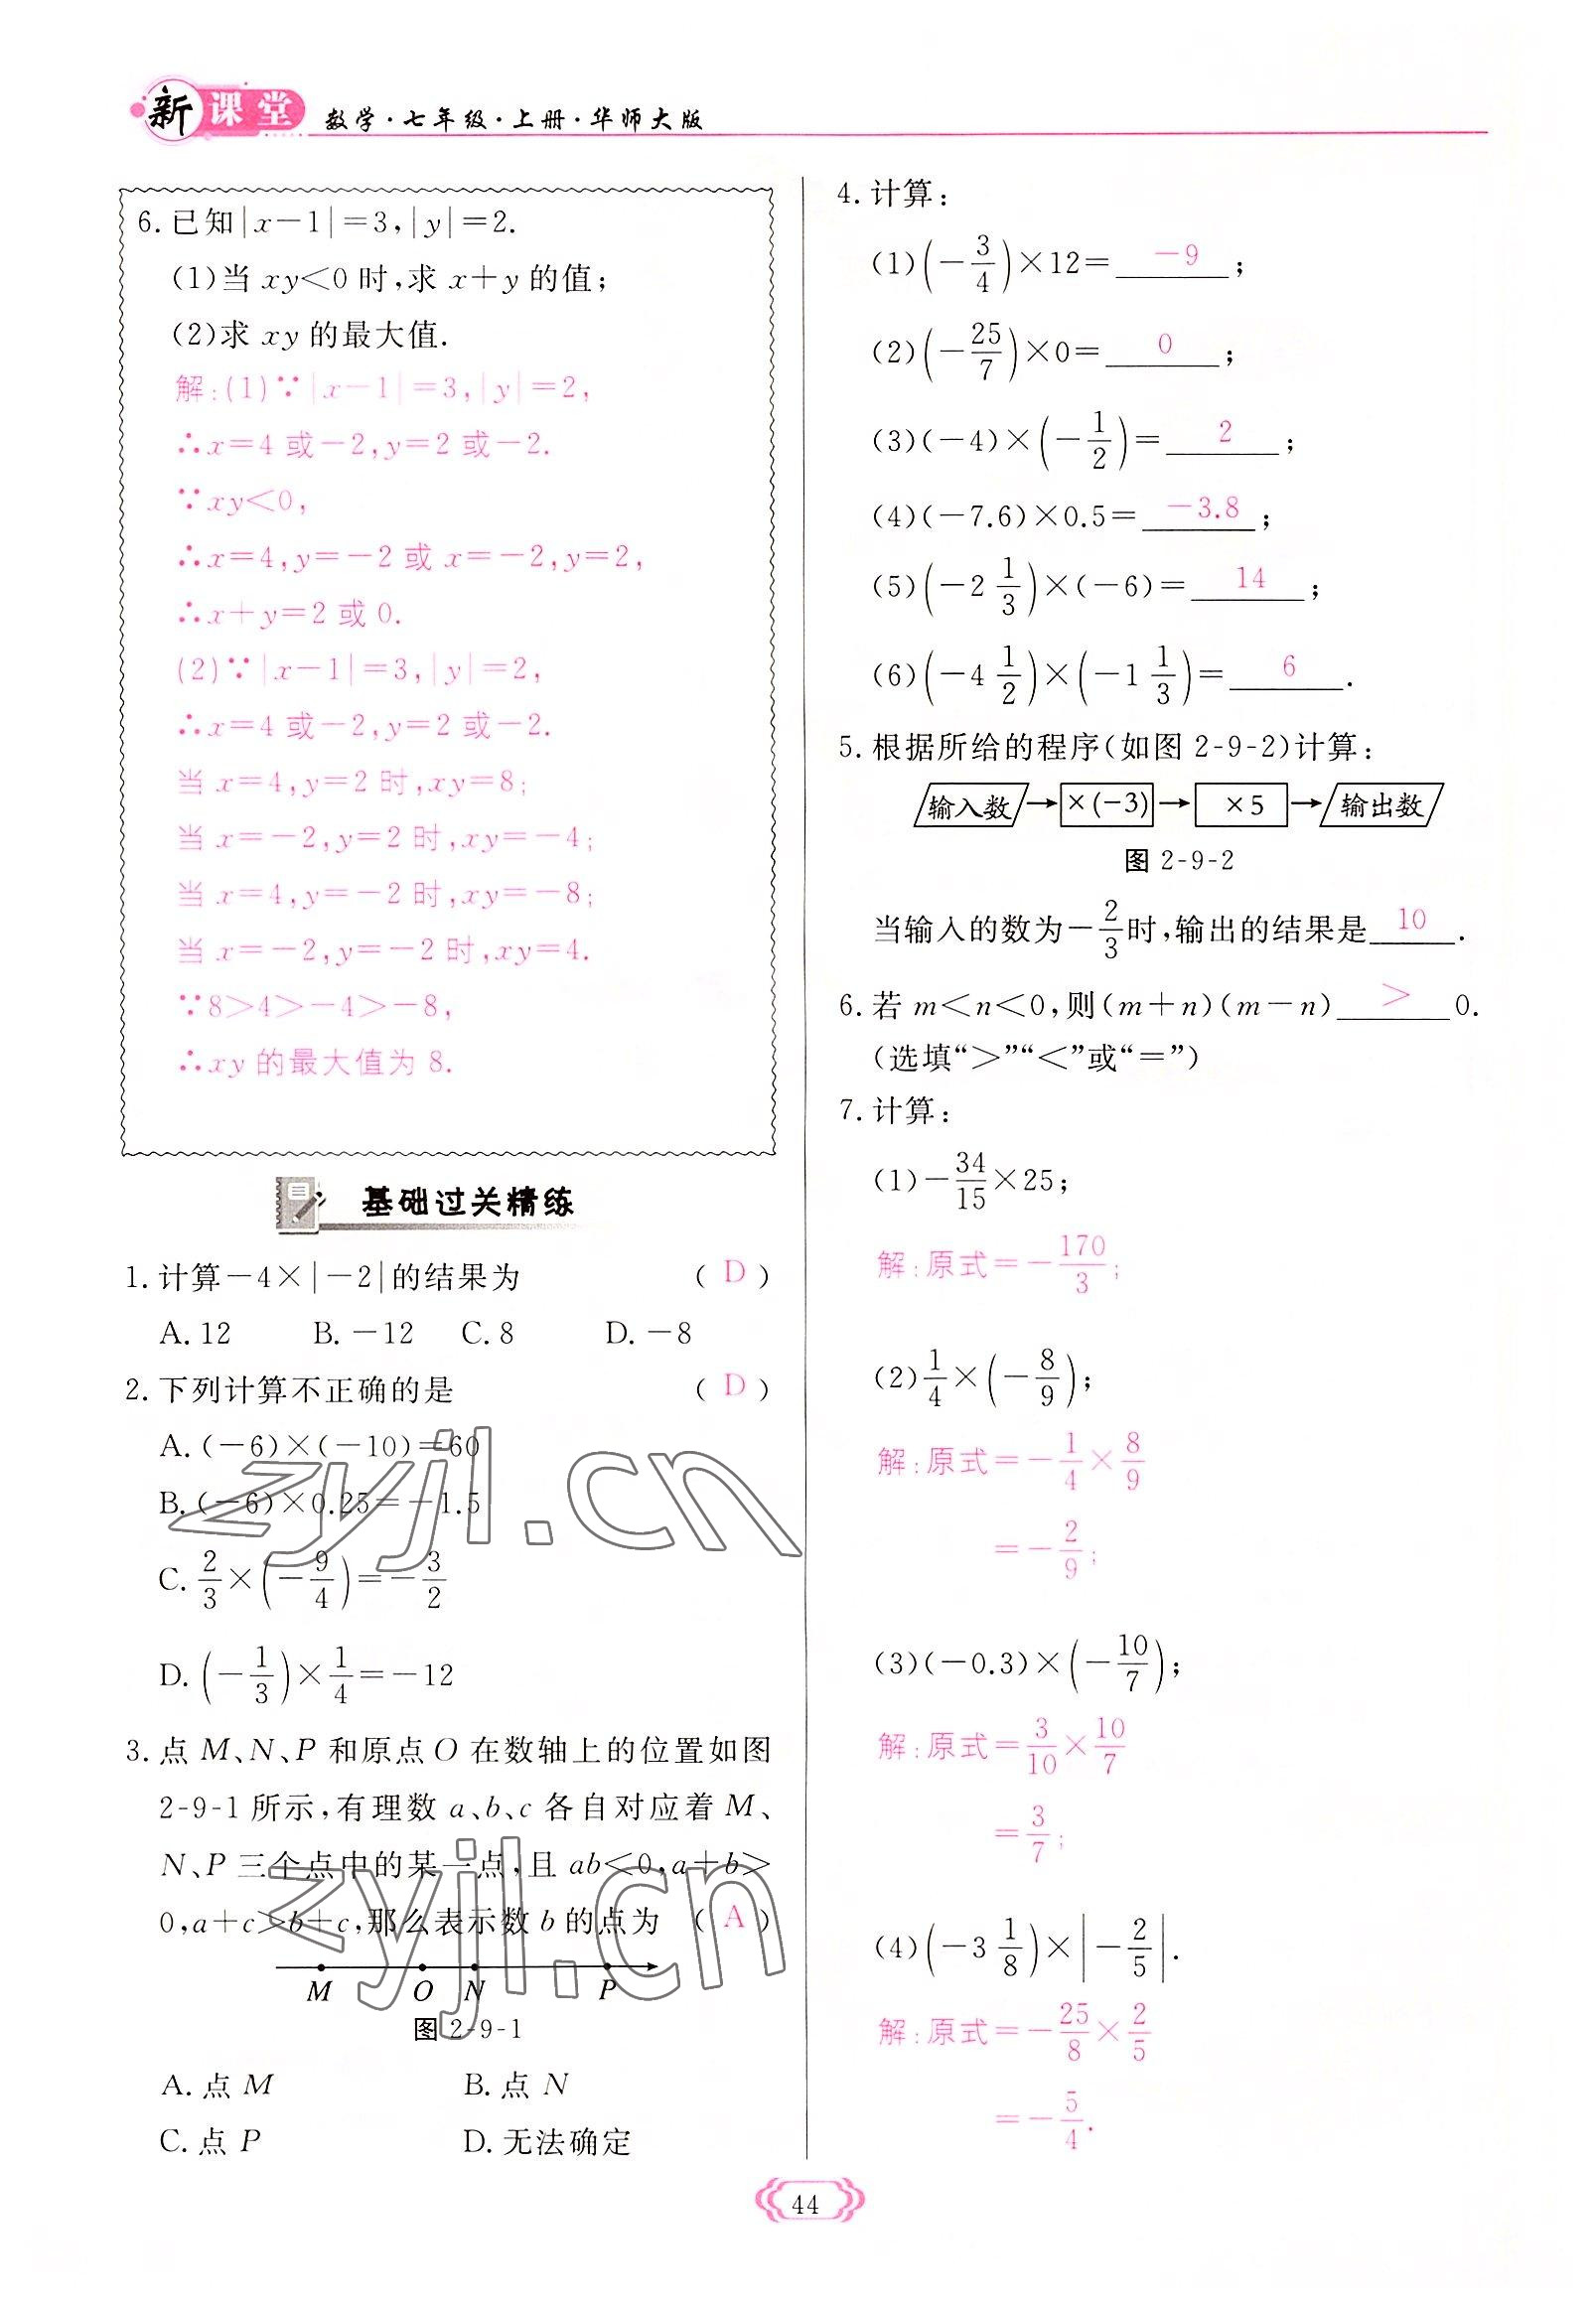 新课堂 数学·七年级·上册·华师大版
6.已知|x-1|=3,|y|=2.
(1)当 xy<0 时,求 x+y 的值;
(2)求 xy 的最大值.
解:(1)∵|x-1|=3,|y|=2,
∴x=4 或-2,y=2 或-2.
∵xy<0,
∴x=4,y=-2 或 x=-2,y=2,
∴x+y=2 或 0.
(2)∵|x-1|=3,|y|=2,
∴x=4 或-2,y=2 或-2.
当 x=4,y=2 时,xy=8;
当 x=-2,y=2 时,xy=-4;
当 x=4,y=-2 时,xy=-8;
当 x=-2,y=-2 时,xy=4.
∵8>4>-4>-8,
∴xy 的最大值为 8.
基础过关精练
1.计算-4×|-2|的结果为 ( D )
A.12 B.-12 C.8 D.-8
2.下列计算不正确的是 ( D )
A.(-6)×(-10)=60
B.(-6)×0.25=-1.5
C.2/3×(-9/4)=-3/2
D.(-1/3)×1/4=-12
3.点 M、N、P 和原点 O 在数轴上的位置如图
2-9-1 所示,有理数 a、b、c 各自对应着 M、
N、P 三个点中的某一点,且 ab<0,a+b>
0,a+c>b+c,那么表示数 b 的点为 ( A )
M O N P
图 2-9-1
A.点 M B.点 N
C.点 P D.无法确定
zyjl.cn
zyjl.cn
4.计算:
(1)(-3/4)×12=-9;
(2)(-25/7)×0=0;
(3)(-4)×(-1/2)=2;
(4)(-7.6)×0.5=-3.8;
(5)(-2 1/3)×(-6)=14;
(6)(-4 1/2)×(-1 1/3)=6.
5.根据所给的程序(如图 2-9-2)计算:
输入数→×(-3)→×5→输出数
图 2-9-2
当输入的数为-2/3时,输出的结果是10.
6.若 m<n<0,则(m+n)(m-n)>0.
(选填“>”“<”或“=”)
7.计算:
(1)-34/15×25;
解:原式=-170/3;
(2)1/4×(-8/9);
解:原式=-1/4×8/9
=-2/9;
(3)(-0.3)×(-10/7);
解:原式=3/10×10/7
=3/7;
(4)(-3 1/8)×|-2/5|.
解:原式=-25/8×2/5
=-5/4.
44